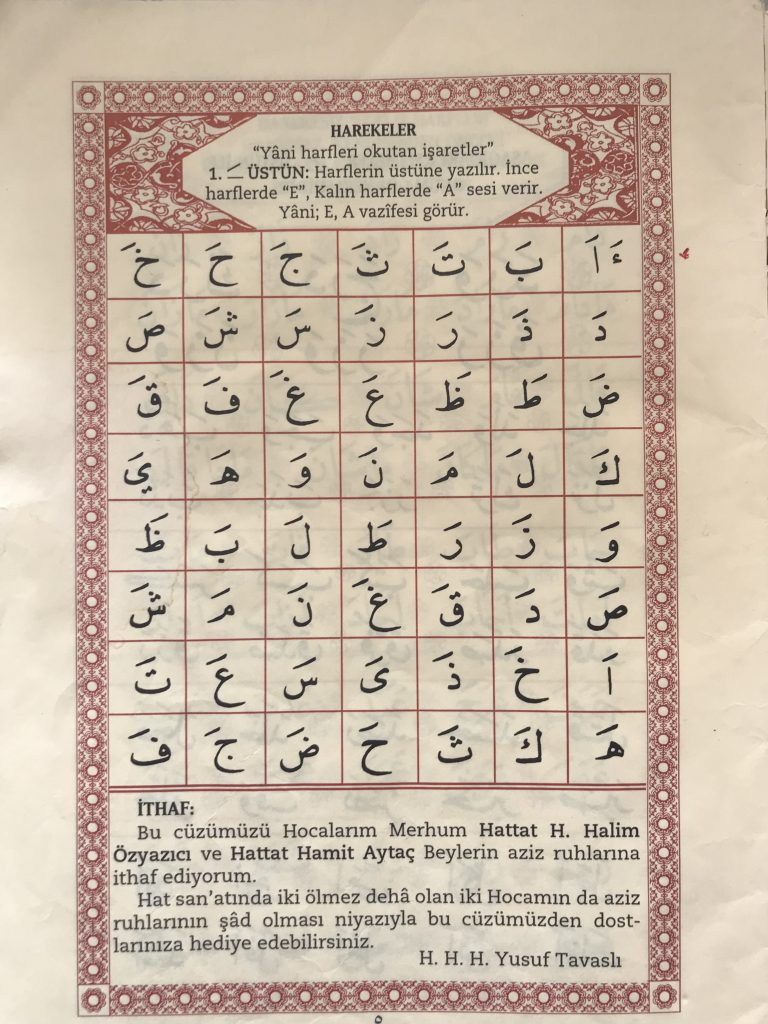 HAREKELER
“Yâni harfleri okutan işaretler”
1. ـَ ÜSTÜN: Harflerin üstüne yazılır. İnce
harflerde “E”, Kalın harflerde “A” sesi verir.
Yâni; E, A vazîfesi görür.
ءَ اَ بَ تَ ثَ جَ حَ خَ
دَ ذَ رَ زَ سَ شَ صَ
ضَ طَ ظَ عَ غَ فَ قَ
كَ لَ مَ نَ وَ هَ يَ
وَ زَ رَ طَ لَ بَ ظَ
صَ دَ قَ غَ نَ مَ شَ
اَ خَ ذَ ىَ سَ عَ تَ
هَ كَ ثَ حَ ضَ جَ فَ
İTHAF:
Bu cüzümüzü Hocalarım Merhum Hattat H. Halim
Özyazıcı ve Hattat Hamit Aytaç Beylerin aziz ruhlarına
ithaf ediyorum.
Hat san’atında iki ölmez dehâ olan iki Hocamın da aziz
ruhlarının şâd olması niyazıyla bu cüzümüzden dost-
larınıza hediye edebilirsiniz.
H. H. H. Yusuf Tavaslı
٥